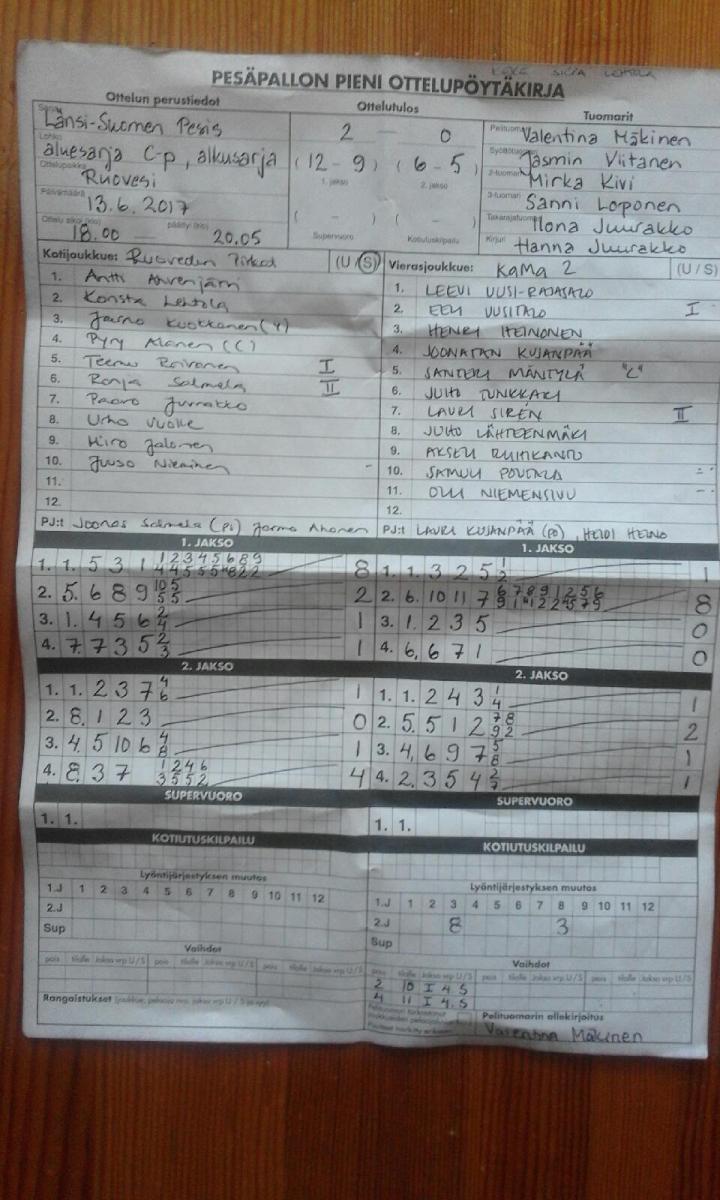 PESÄPALLON PIENI OTTELUPÖYTÄKIRJA
Ottelun perustiedot
Ottelutulos
Tuomarit
Sarja
Länsi-Suomen Pesis
Lohko
aluesarja C-p, alkusarja
Ottelupaikka
Ruovesi
Päivämäärä
13.6.2017
Ottelu alkoi (klo) päättyi (klo)
18.00 20.05
2 - 0
(12 - 9) (6 - 5)
1. jakso 2. jakso
( - ) ( - )
Supervuoro Kotiutuskilpailu
Pelituomari Valentina Mäkinen
Syöttötuomari Jasmin Viitanen
2-tuomari Mirka Kivi
3-tuomari Sanni Loponen
Takarajatuomari Ilona Juurakko
Kirjuri Hanna Juurakko
Kotijoukkue: Ruoveden Pirkat (U / S)
1. Antti Ahvenjärvi
2. Konsta Lehtola
3. Jarno Kuokkanen (Y)
4. Pyry Alanen (C)
5. Teemu Roivanen I
6. Ronja Salmela II
7. Paavo Jurrakko
8. Urho Vuolle
9. Miro Jalonen
10. Juuso Nieminen -
11.
12.
PJ:t Joonas Salmela (PJ) Jarmo Ahonen
Vierasjoukkue: KaMa 2 (U / S)
1. LEEVI UUSI-RAJASALO
2. EELI UUSITALO I
3. HENRI HEINONEN
4. JOONATAN KUJANPÄÄ
5. SANTERI MÄNTYLÄ "C"
6. JUHO TUNKKARI
7. LAURI SIRÉN II
8. JUHO LÄHTEENMÄKI
9. AKSELI RUIHKANTO
10. SAMULI POUTALA
11. OLLI NIEMENSIVU
12.
PJ:t LAURI KUJANPÄÄ (PJ), HEIDI HEINO
1. JAKSO
1. 1. 5 3 1 8
2. 5. 6 8 9 2
3. 1. 4 5 6 1
4. 7. 7 3 5 1
1. JAKSO
1. 1. 3 2 5 1
2. 6. 10 11 7 8
3. 1. 2 3 5 0
4. 6. 6 7 1 0
2. JAKSO
1. 1. 2 3 7 1
2. 8. 1 2 3 0
3. 4. 5 10 6 1
4. 8. 3 7 4
2. JAKSO
1. 1. 2 4 3 1
2. 5. 5 1 2 2
3. 4. 6 9 7 1
4. 2. 3 5 4 1
SUPERVUORO
1. 1.
KOTIUTUSKILPAILU
SUPERVUORO
1. 1.
KOTIUTUSKILPAILU
Lyöntijärjestyksen muutos
1.J 1 2 3 4 5 6 7 8 9 10 11 12
2.J
Sup
Vaihdot
pois tilalle Jakso vrp U / S
Rangaistukset
Lyöntijärjestyksen muutos
1.J 1 2 3 4 5 6 7 8 9 10 11 12
2.J 8 3
Sup
Vaihdot
pois tilalle Jakso vrp U / S
2 10 I 4 S
4 11 I 4 S
Pelituomarin allekirjoitus
Valentina Mäkinen